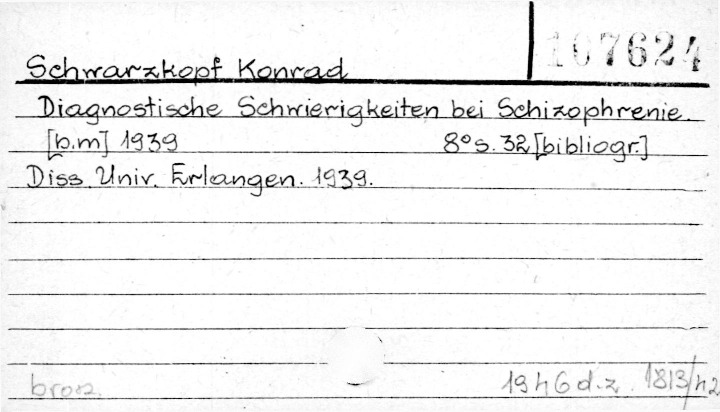 107624
Schwarzkopf Konrad
Diagnostische Schwierigkeiten bei Schizophrenie.
[b.m] 1939 8° s. 32 [bibliogr.]
Diss. Univ. Erlangen. 1939.
brosz. 1946 d.z. 1813/42